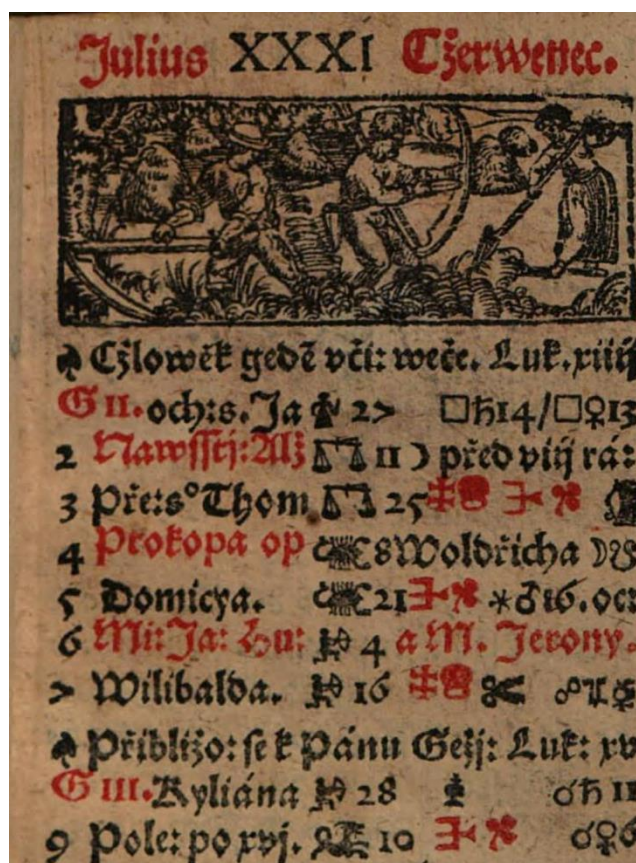 Julius XXXI Cžerwenec.
Cžlowěk gedē včí: weče. Luk. xiiij
G II. och: s. Ja 27 □♄14/□♀13
2 Nawsstj: Alž ♎ 11 ☽ před viij rá:
3 Pře: s° Thom ♎ 25
4 Prokopa op 8 Woldřicha
5 Domicya. 21 ⚹♂16. oc:
6 Mi: Ja: Hu: 4 a M. Jerony.
7 Wilibalda. 16 ☍
Přibližo: se k Pánu Gežj: Luk: xv
G III. Kyliána 28 ☌♄ 11
9 Pole: po xvj. 10 ☌♀6